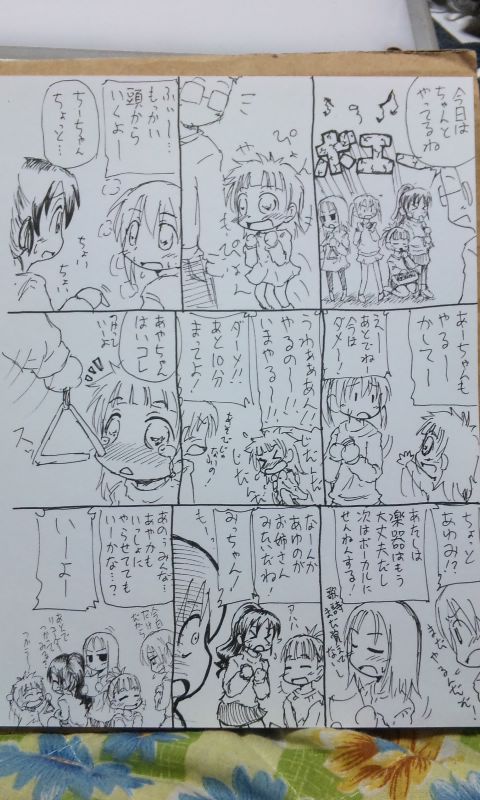 今日は
ちゃんと
やってるね
ボエー
ぴょ
ぴょん
ふぃー…
もっかい
頭から
いくよー
ちーちゃん
ちょっと…
ちょい
ちょい
あーちゃんも
やるー
かしてー
えー
あとでねー
今は
ダメー！
うわぁああん
やるのー！！
いまやるー！！
じたじた
じたん
ダーメ！！
あと10分
まってよ！
あそびじゃ
ないの！
あやちゃん
はいコレ
つかって
いいよ
スッ
ちょっと
あゆみ！？
あたしは
楽器はもう
大丈夫だし
次はボーカルに
せんねんする！
なーんか
あゆのが
お姉さん
みたいだね！
アハハ
みっちゃん！
もっ
あのぅみんな…
あやかも
いっしょに
やらせてても
いーかな…？
いーよー